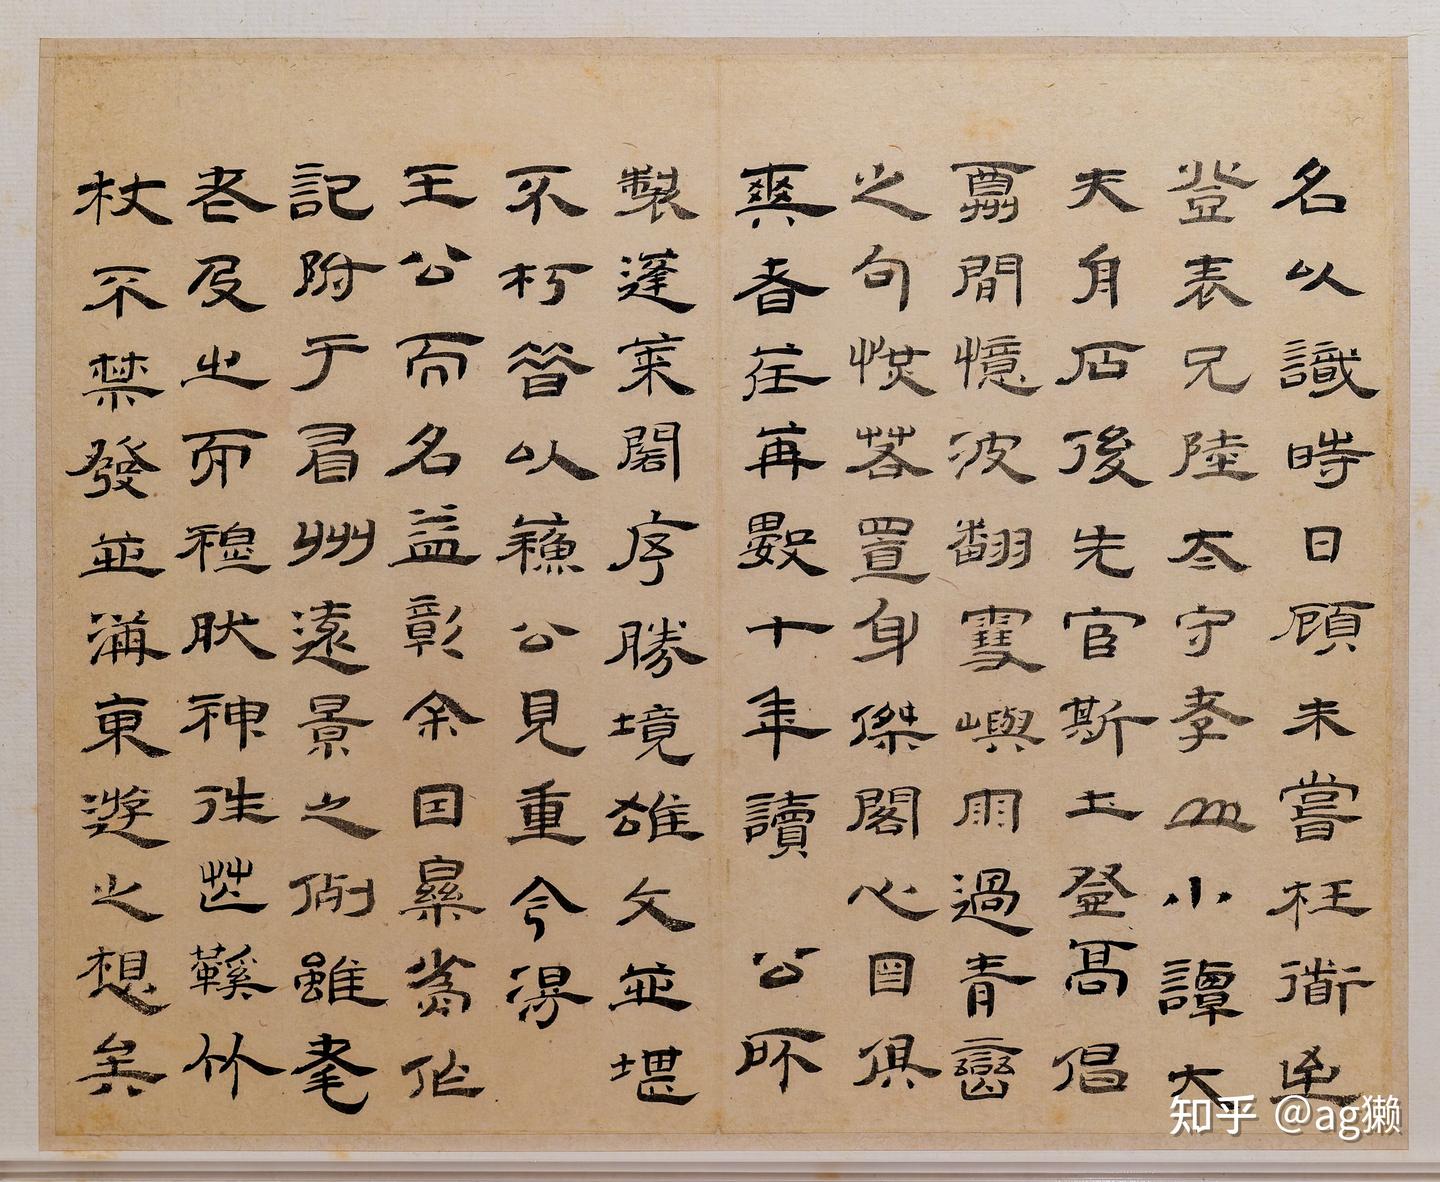 名以識時日顧未嘗枉銜逌
登表兄陸太守孝山小譚大
夫身石後先官斯土登高倡
辱間憶波翻雪嶼雨過青巒
之句怳若置身傑閣心目俱
爽者荏苒數十年讀 公所
製蓬萊閣序勝境雄文並堪
不朽昔以蘓公見重今得
王公而名益彰余因纍為作
記附于眉州遠景之例雖耄
老及之而穆肰神往芒鞵竹
杖不禁發並滿東遊之想矣
知乎 @ag獭